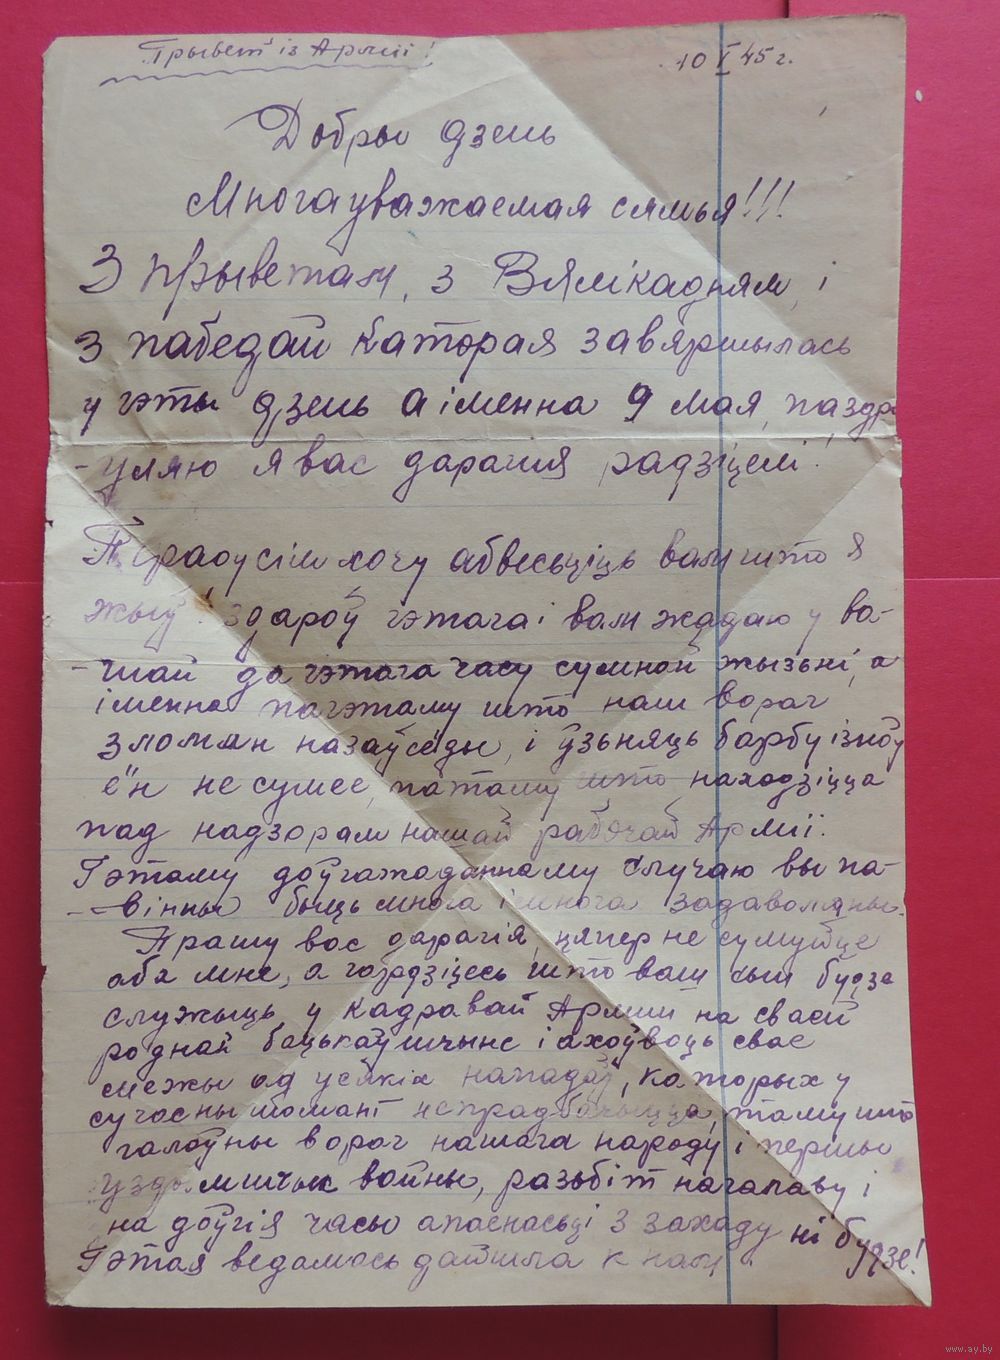 Прывет із Арміі!
10 V 45 г.
Добры дзень
Многауважаемая сямья!!!
З прыветам, з Вялікадням, і
з пабедай каторая завяршылась
у гэты дзень а іменна 9 мая, паздр
-уляю я вас дарагія радзіцелі!
Перадусім хочу абвесьціць вам што я
жыў! здароў гэтага і вам жадаю у ва-
-шай да гэтага часу сумной жызьні, а
іменна пагэтаму што наш вораг
зломан назаўсёды, і ўзьняць барбу ізноў
ён не сумее, патаму што находзіцца
пад надзорам нашай рабочай Арміі.
Гэтаму доўгажаданнаму случаю вы па-
-вінны быць многа і многа задаволяны.
Прашу вас дарагія, цяпер не сумуйце
аба мне, а гордзіцесь што ваш сын будзе
служыць у кадравай Арміи на сваей
роднай бацькаўшчыне і ахоўваць свае
межы од усякіх нападаў, каторых у
сучасны момант непрадбачыцца, таму што
галоўны вораг нашага народу і першы
уздымшчык войны, разьбіт наголаву і
на доўгія часы апаснасьці з захаду ні будзе!
Гэтая ведамось дайшла к нам
www.ay.by